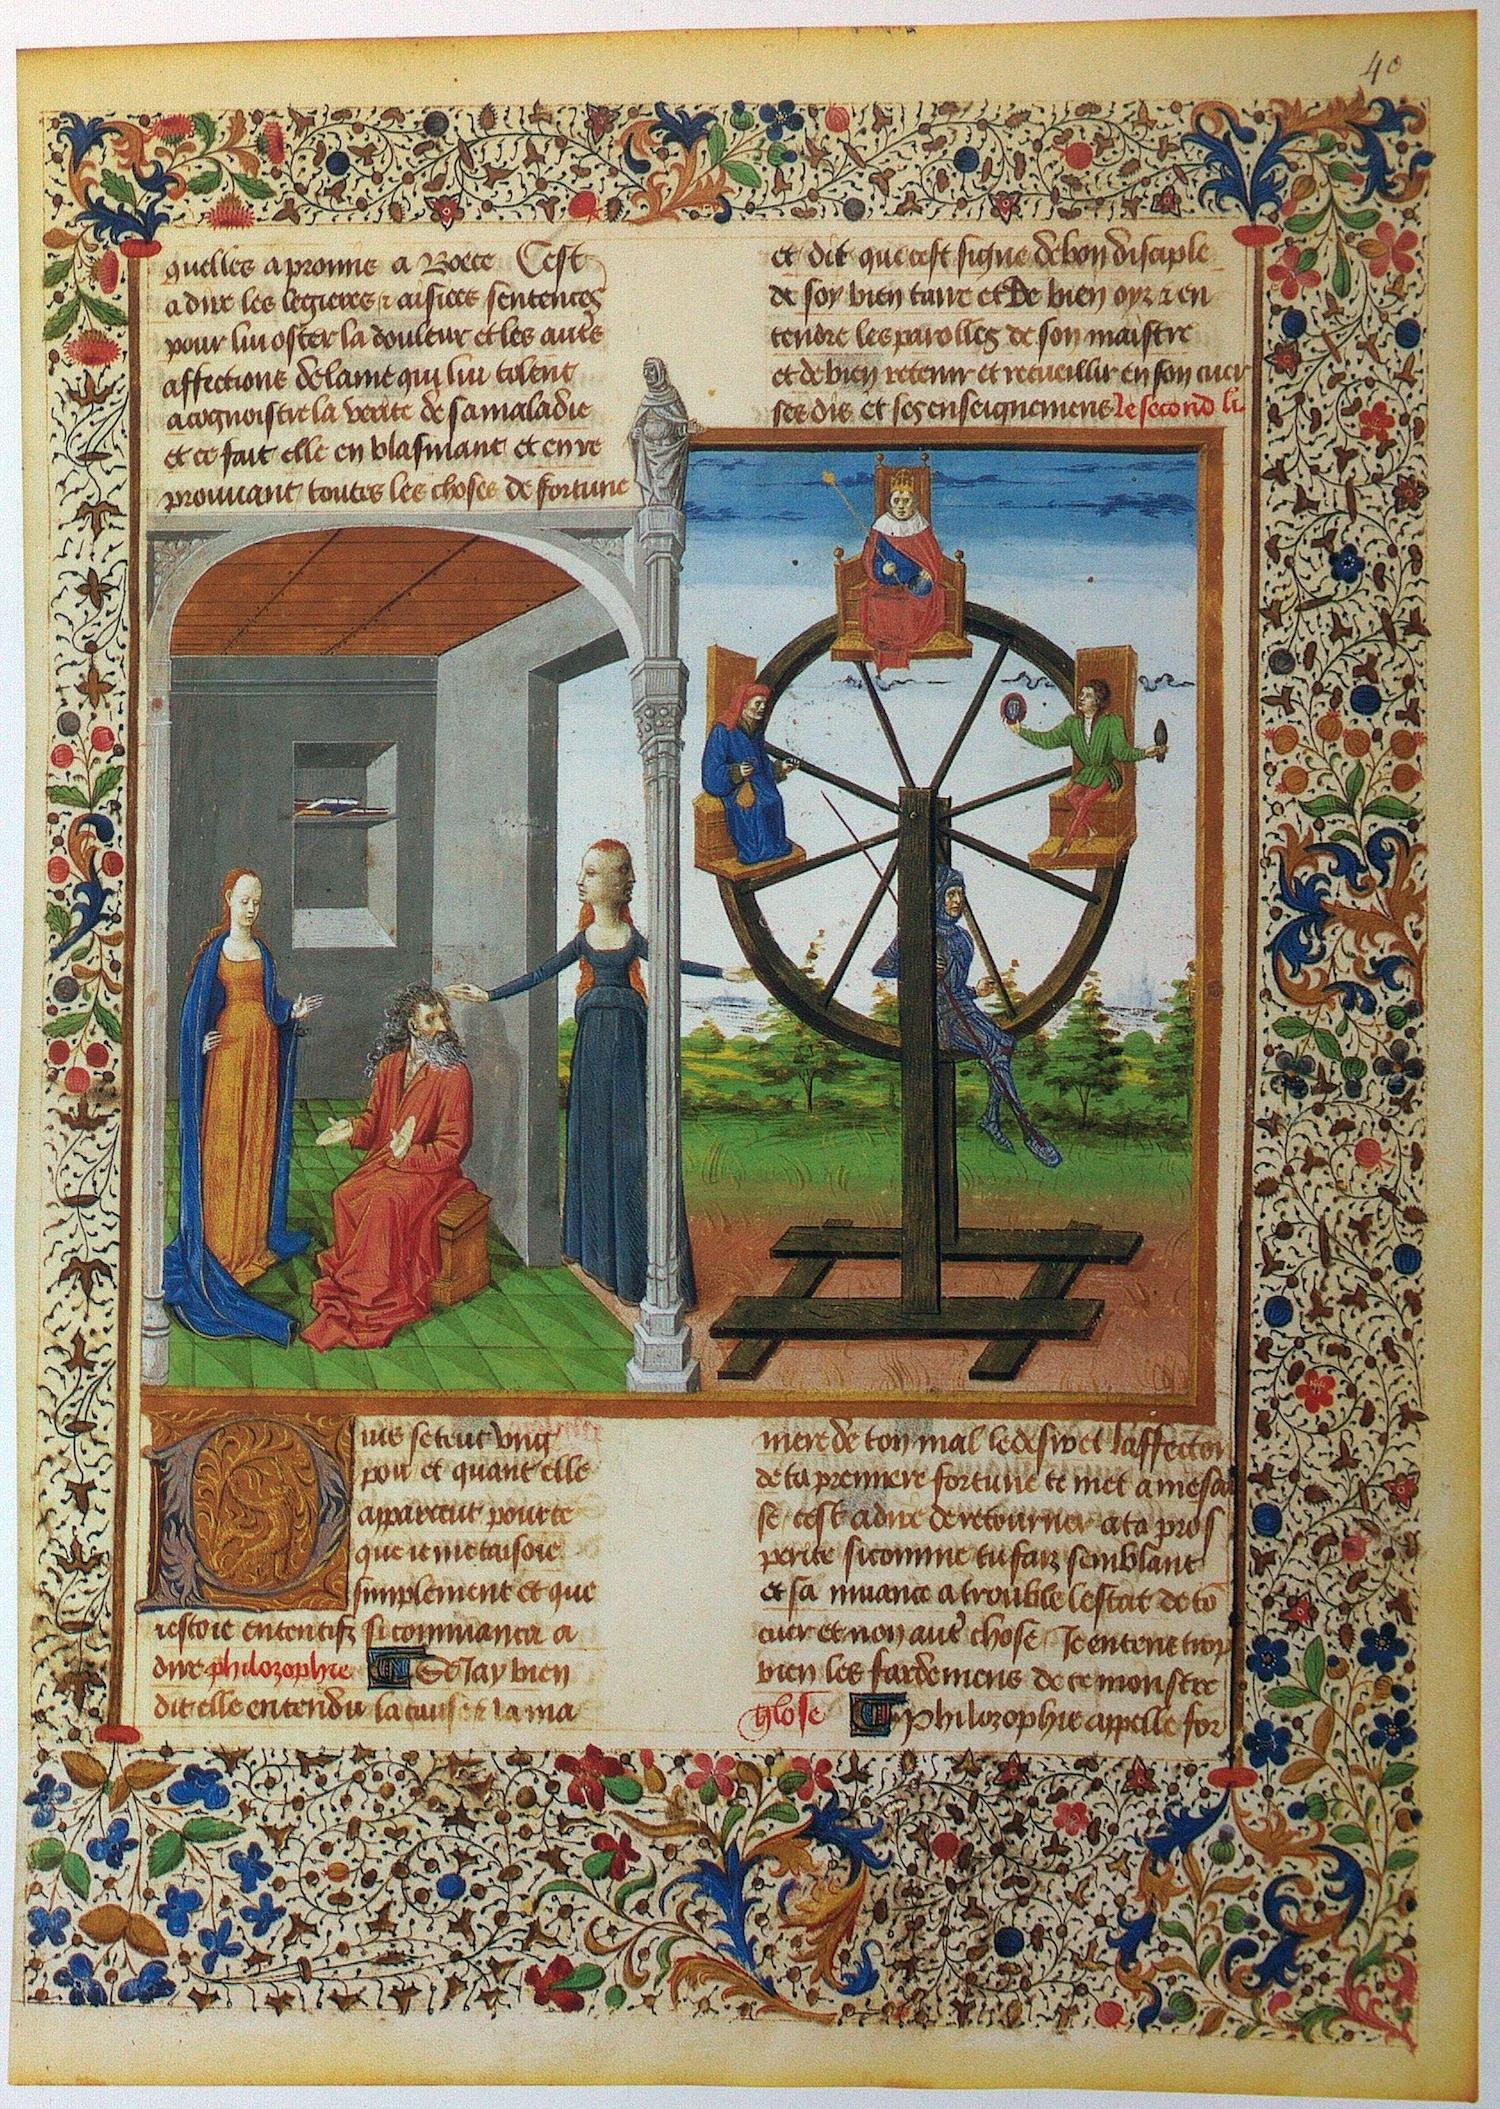 40
quelles apronne a Boece Cest
a dire les legieres ⁊ aisiees sentences
pour lui oster la douleur et les autẽs
affections de lame qui lui tolent
a cognoistre la verite de sa maladie
et ce fait elle en blasmant et en re
prouuant toutes les choses de fortune
et dit que cest signe de bon disciple
de soy bien taire et De bien oyr ⁊ en
tendre les parolles de son maistre
et de bien retenir et recueillir en son cuer
ses dis et ses enseignemens le second li
uis se teut vng
pou et quant elle
apparceut pource
que ie me taisoie
simplement et que
iestoie ententifz si commanca a
dire philozophie Se Jay bien
dit elle entendu la cause ⁊ la ma
niere de ton mal le desir et laffection
de ta premiere fortune te met a mesai
se cest a dire de retourner a ta pros
perite si comme tu faiz semblant
et sa muance a trouble lestat de tõ
cuer et non autẽ chose Je entens trop
bien les fardemens de ce monstre
glose Philozophie appelle for